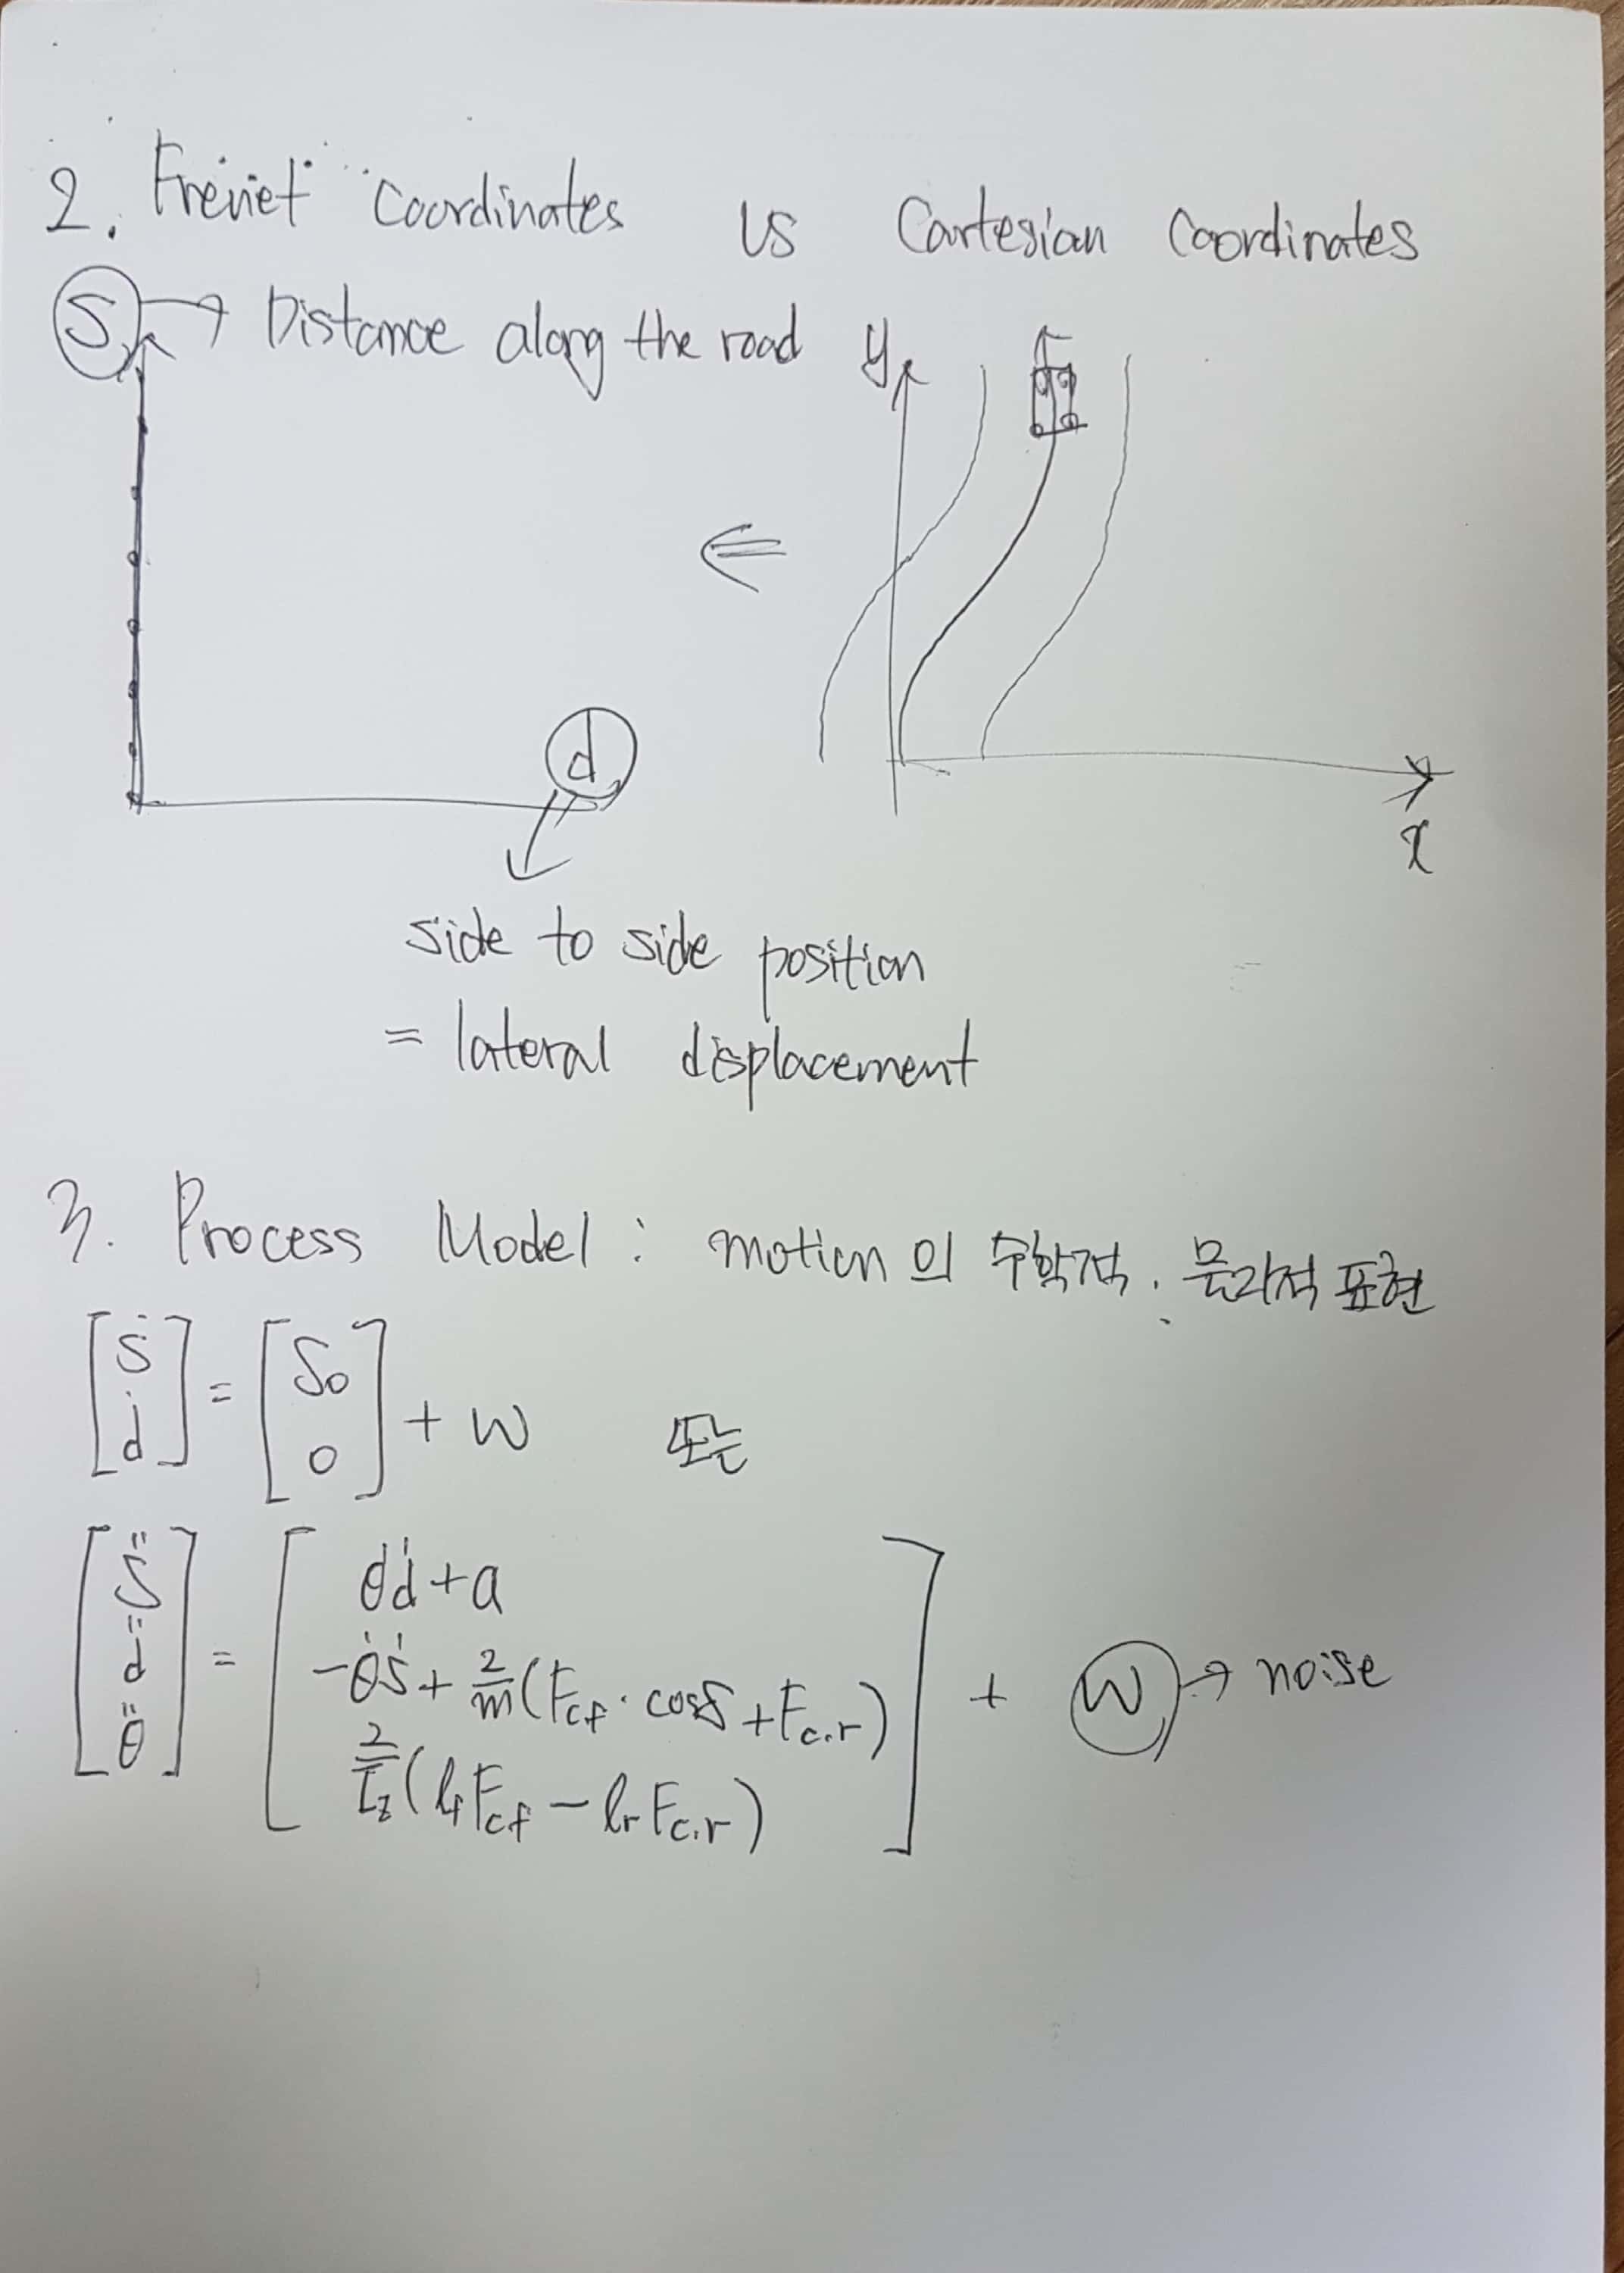 2. Frenet Coordinates vs Cartesian Coordinates
S → Distance along the road
y
x
d
side to side position
= lateral displacement
3. Process Model : motion의 수학적. 물리적 표현
[ṡ ḋ] = [S₀ 0] + W 또는
[s̈ d̈ θ̈] = [θ̇ḋ+a
-θ̇ṡ + 2/m(Fc,f · cosδ + Fc,r)
2/Iz(lf Fc,f - lr Fc,r)] + W → noise